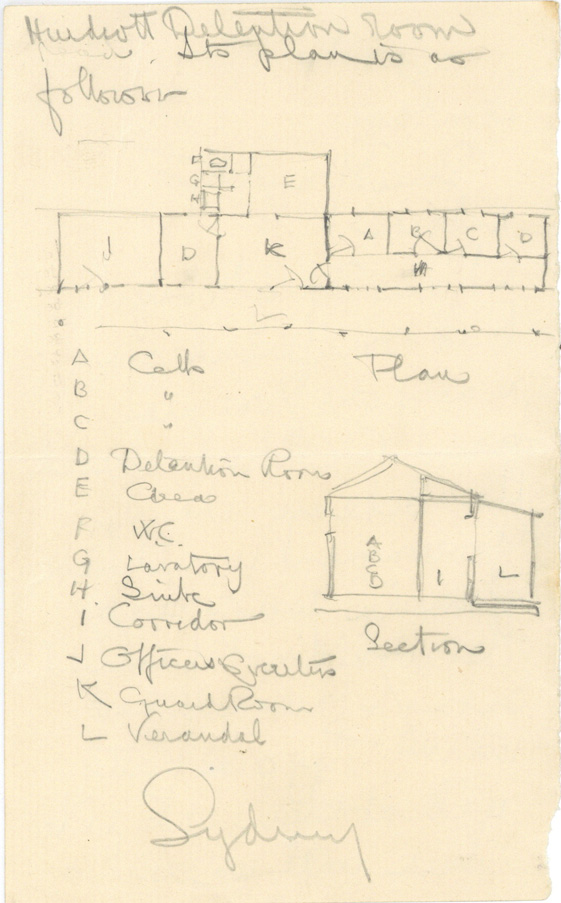 Hurdcott Detention Room
Its plan is as
follows:-
F
G
H
E
J
D
K
A
B
C
D
L
A Cells
B "
C "
Plan
D Detention Room
E Area
F W.C.
G Lavatory
H Sink
I Corridor
J Officers Quarters
K Guard Room
L Verandah
A
B
C
D
I
L
Section
Sydney